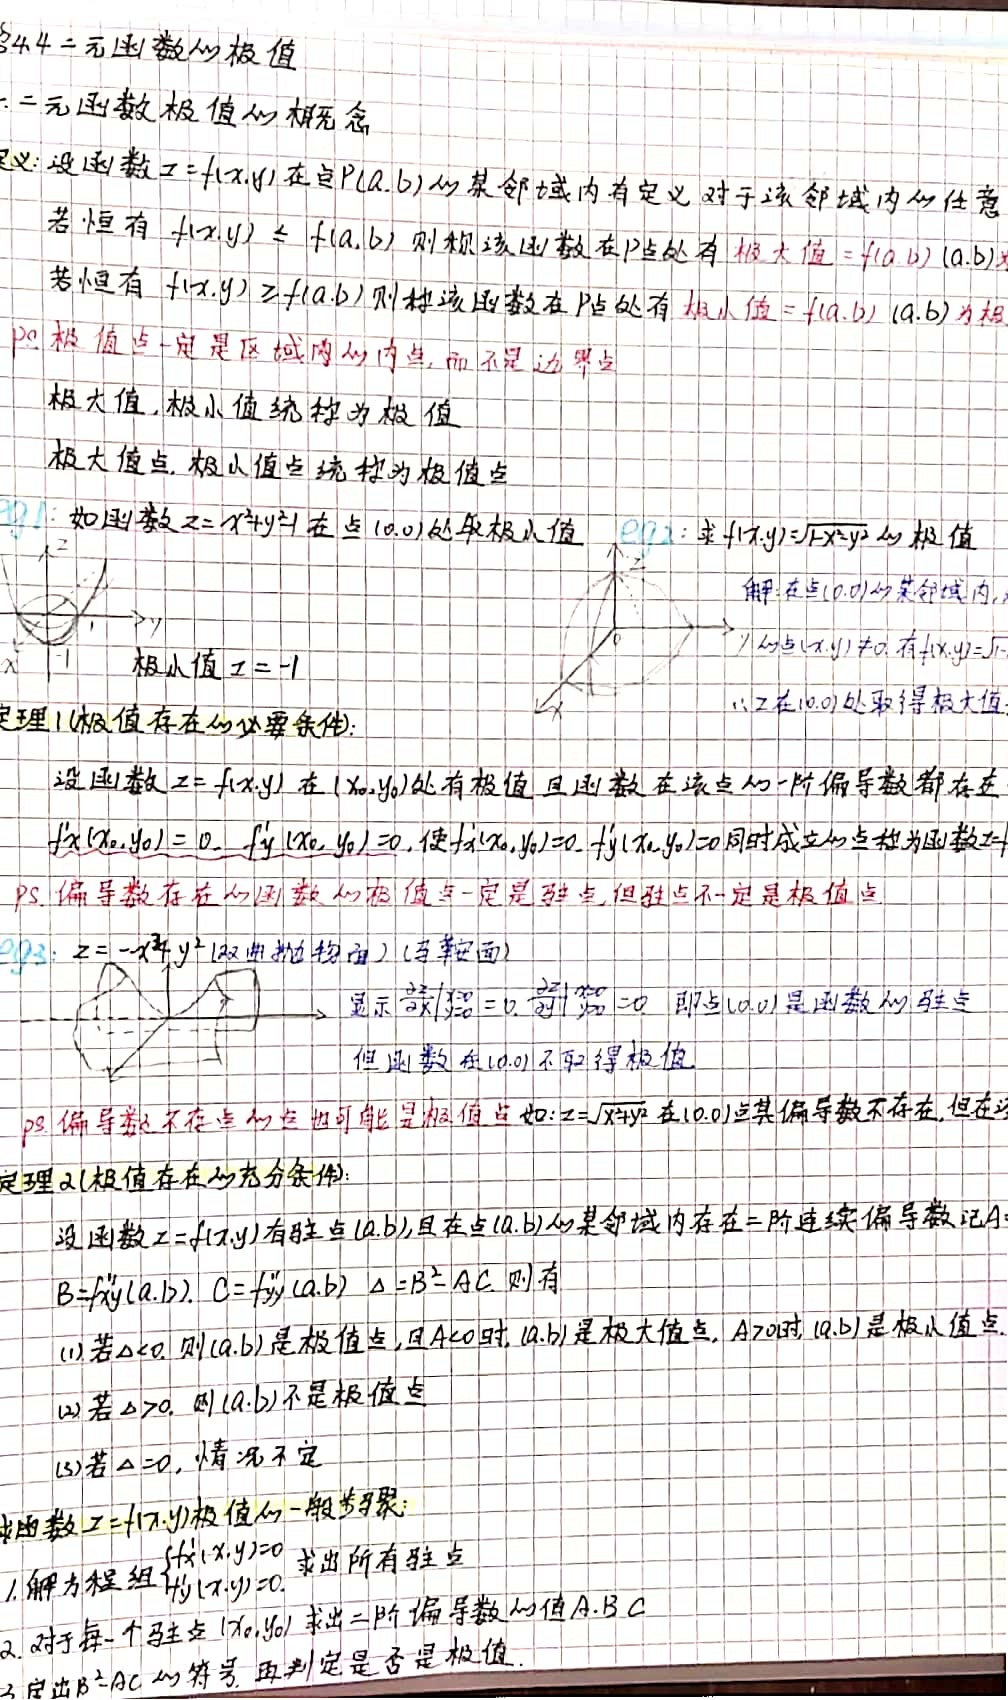 §4.4 二元函数的极值
一.二元函数极值的概念
定义:设函数z=f(x.y)在点P(a.b)的某邻域内有定义 对于该邻域内的任意
若恒有 f(x.y) ≤ f(a.b) 则称该函数在P点处有极大值=f(a.b) (a.b)为
若恒有 f(x.y) ≥ f(a.b) 则称该函数在P点处有极小值=f(a.b) (a.b)为极
ps.极值点一定是区域内的内点,而不是边界点
极大值,极小值统称为极值
极大值点.极小值点统称为极值点
eg1:如函数z=x²+y²-1在点(0.0)处取极小值
z
y
x
1
-1
极小值z=-1
eg2:求f(x.y)=√1-x²-y²的极值
z
0
y
x
解:在点(0.0)的某邻域内,
的点(x.y)≠0.有f(x.y)=√1-
∴z在(0.0)处取得极大值
定理1(极值存在的必要条件):
设函数z=f(x.y)在(x₀.y₀)处有极值 且函数在该点的一阶偏导数都存在
f'x(x₀.y₀)=0. f'y(x₀.y₀)=0.使f'x(x₀.y₀)=0.f'y(x₀.y₀)=0同时成立的点称为函数z=f
ps.偏导数存在的函数的极值点一定是驻点,但驻点不一定是极值点
eg3: z=-x²+y²(双曲抛物面)(马鞍面)
显示 ∂z/∂x|x=0 y=0 =0. ∂z/∂y|x=0 y=0 =0 即点(0.0)是函数的驻点
但函数在(0.0)不取得极值
ps.偏导数不存点的点也可能是极值点 如:z=√x²+y² 在(0.0)点其偏导数不存在,但在该
定理2(极值存在的充分条件):
设函数z=f(x.y)有驻点(a.b),且在点(a.b)的某邻域内存在二阶连续偏导数记A=
B=f''xy(a.b). C=f''yy(a.b) Δ=B²-AC.则有
(1)若Δ<0.则(a.b)是极值点,且A<0时,(a.b)是极大值点. A>0时,(a.b)是极小值点.
(2)若Δ>0.则(a.b)不是极值点
(3)若Δ=0,情况不定
求函数z=f(x.y)极值的一般步骤:
1.解方程组{f'x(x.y)=0 f'y(x.y)=0. 求出所有驻点
2.对于每一个驻点(x₀.y₀)求出二阶偏导数的值A.B C
3.定出B²-AC的符号.再判定是否是极值.